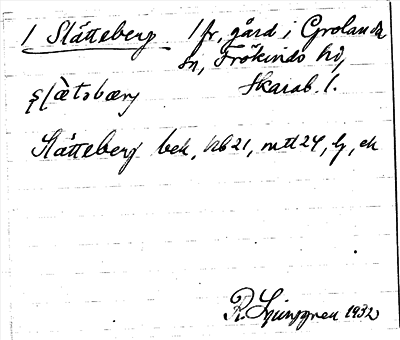 1 Slätteberg 1 fr, gård i Grolanda
sn, Frökinds hd,
Skarab. l.
slæ̀təbærj
Slätteberg bek, KB 21, mtl 24, lj, ek
R. Ljunggren 1932